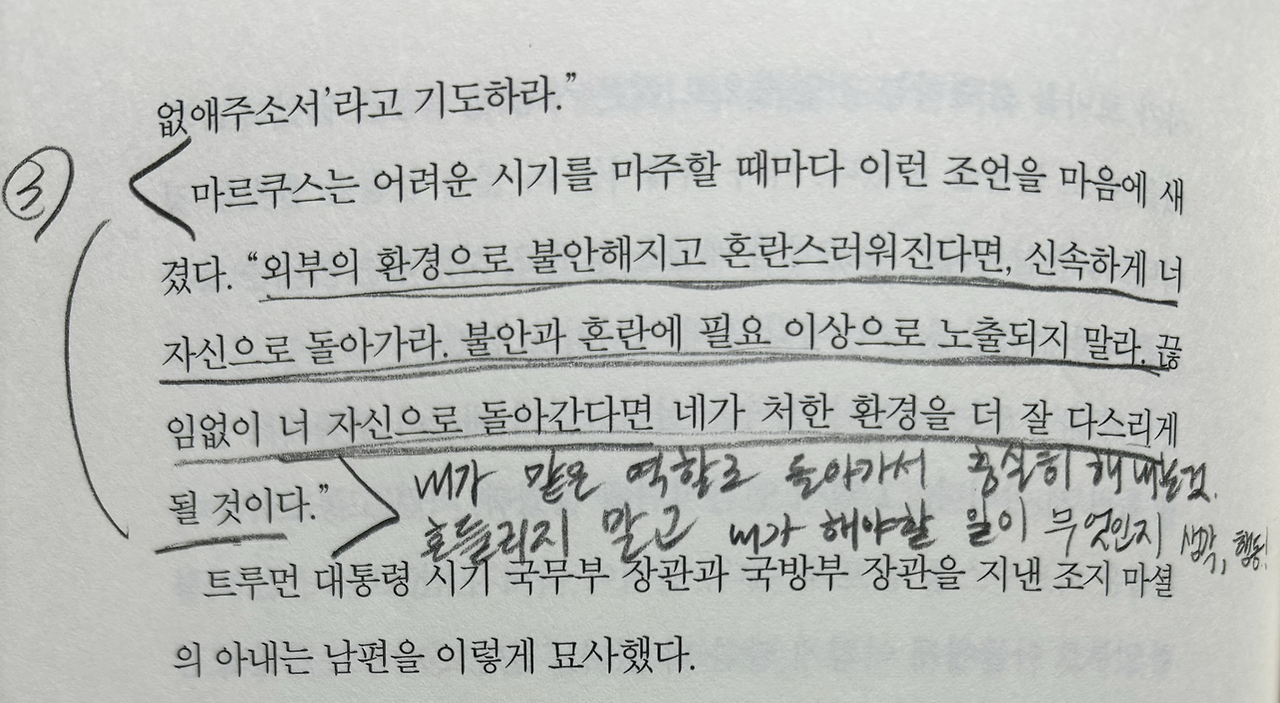 없애주소서'라고 기도하라.”
③
마르쿠스는 어려운 시기를 마주할 때마다 이런 조언을 마음에 새
겼다. “외부의 환경으로 불안해지고 혼란스러워진다면, 신속하게 너
자신으로 돌아가라. 불안과 혼란에 필요 이상으로 노출되지 말라. 끊
임없이 너 자신으로 돌아간다면 네가 처한 환경을 더 잘 다스리게
될 것이다.”
내가 맡은 역할로 돌아가서 충실히 해내는것.
흔들리지 말고 내가 해야할 일이 무엇인지 생각, 행동!
트루먼 대통령 시기 국무부 장관과 국방부 장관을 지낸 조지 마셜
의 아내는 남편을 이렇게 묘사했다.